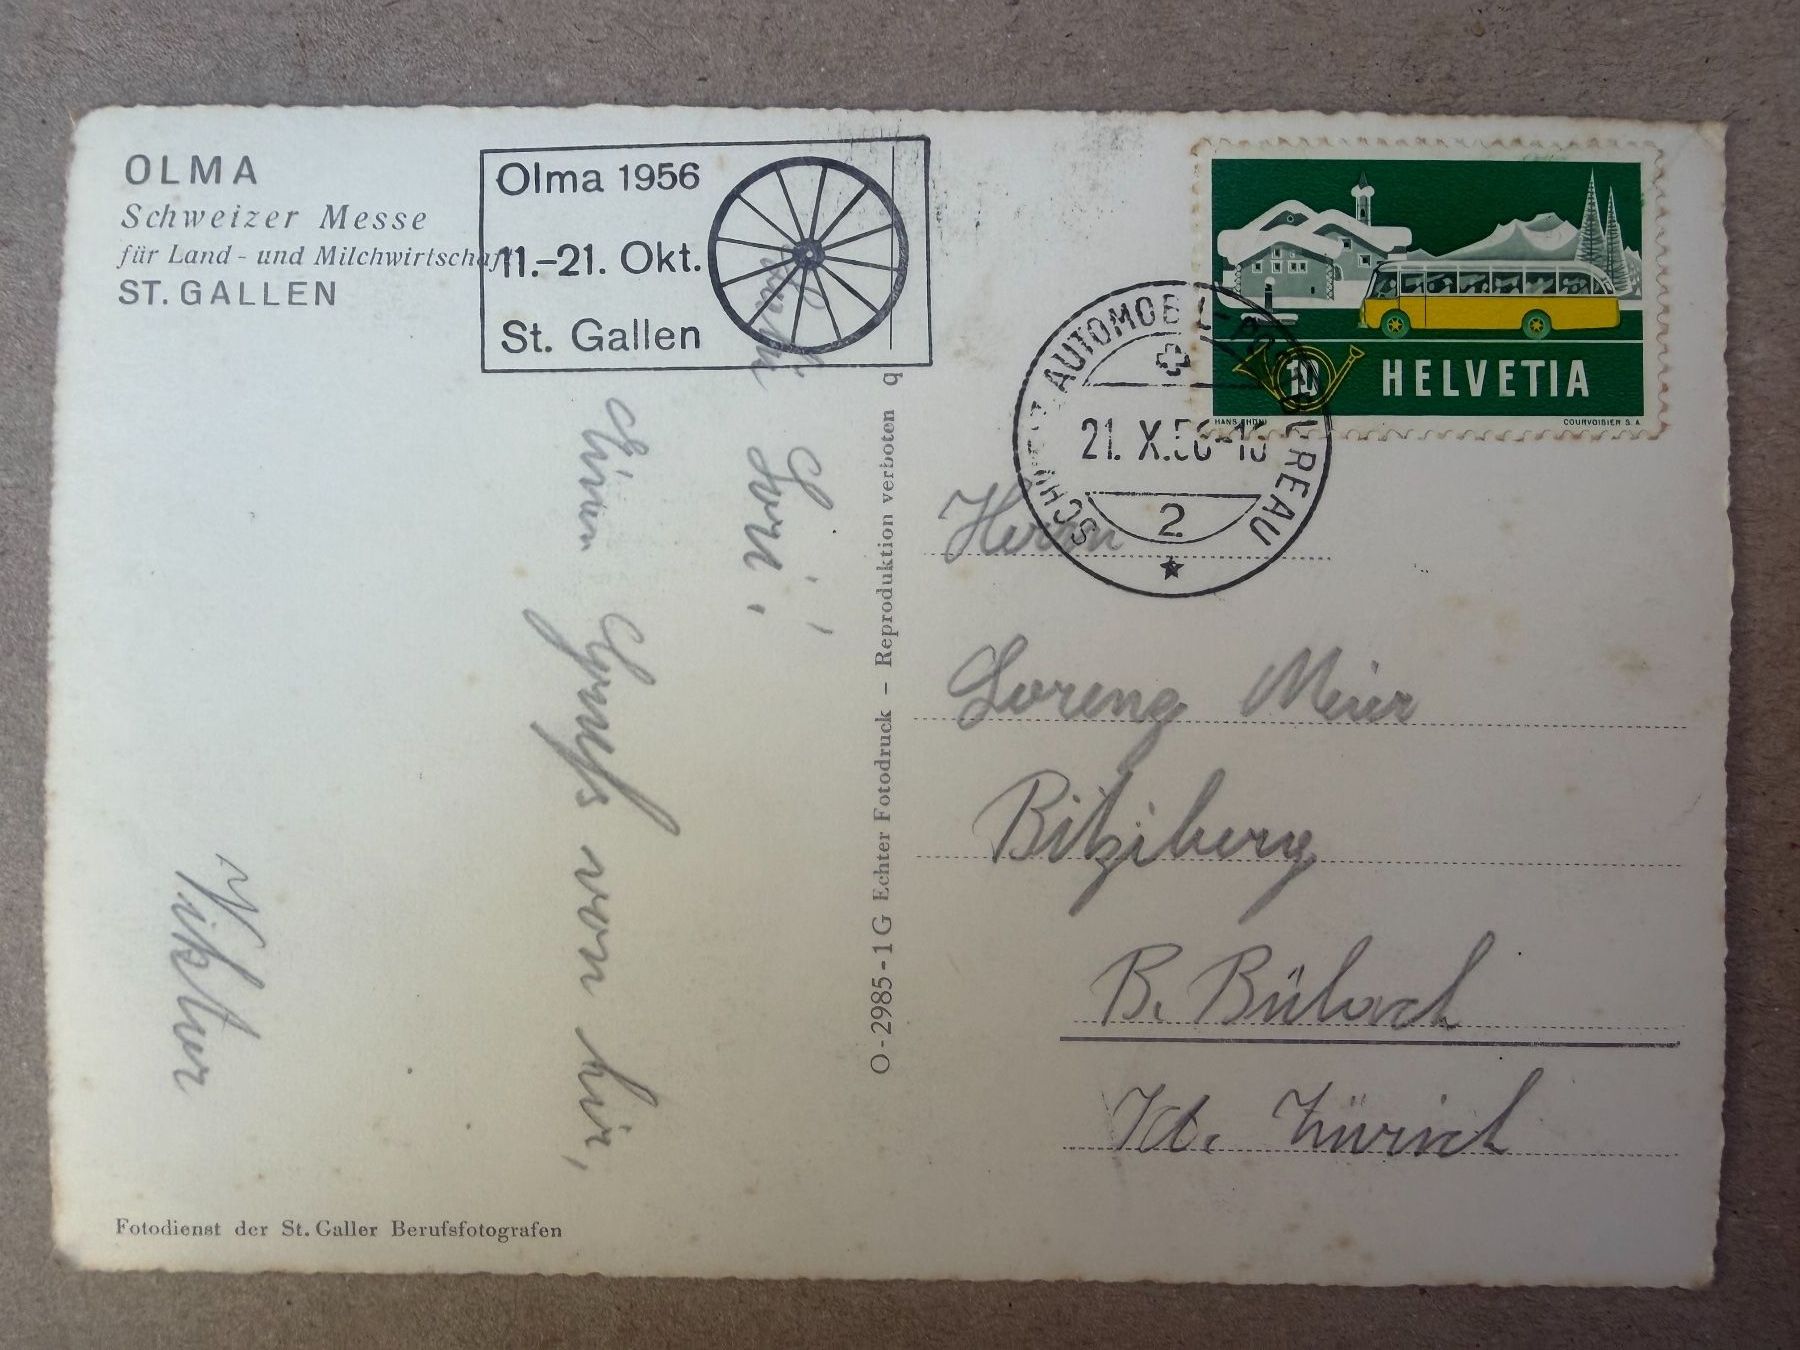 OLMA
Schweizer Messe
für Land- und Milchwirtschaft
ST. GALLEN
Olma 1956
11.–21. Okt.
St. Gallen
SCHWEIZ. AUTOMOBIL-POSTBUREAU
21. X.56-15
2
10 HELVETIA
HANS THÖNI
COURVOISIER S.A.
Lori!
Einen Gruss von hir,
Viktor
O-2985-1G Echter Fotodruck – Reproduktion verboten
q
Herrn
Lorenz Meier
Bitziberg
B. Bülach
Kt. Zürich
Fotodienst der St. Galler Berufsfotografen